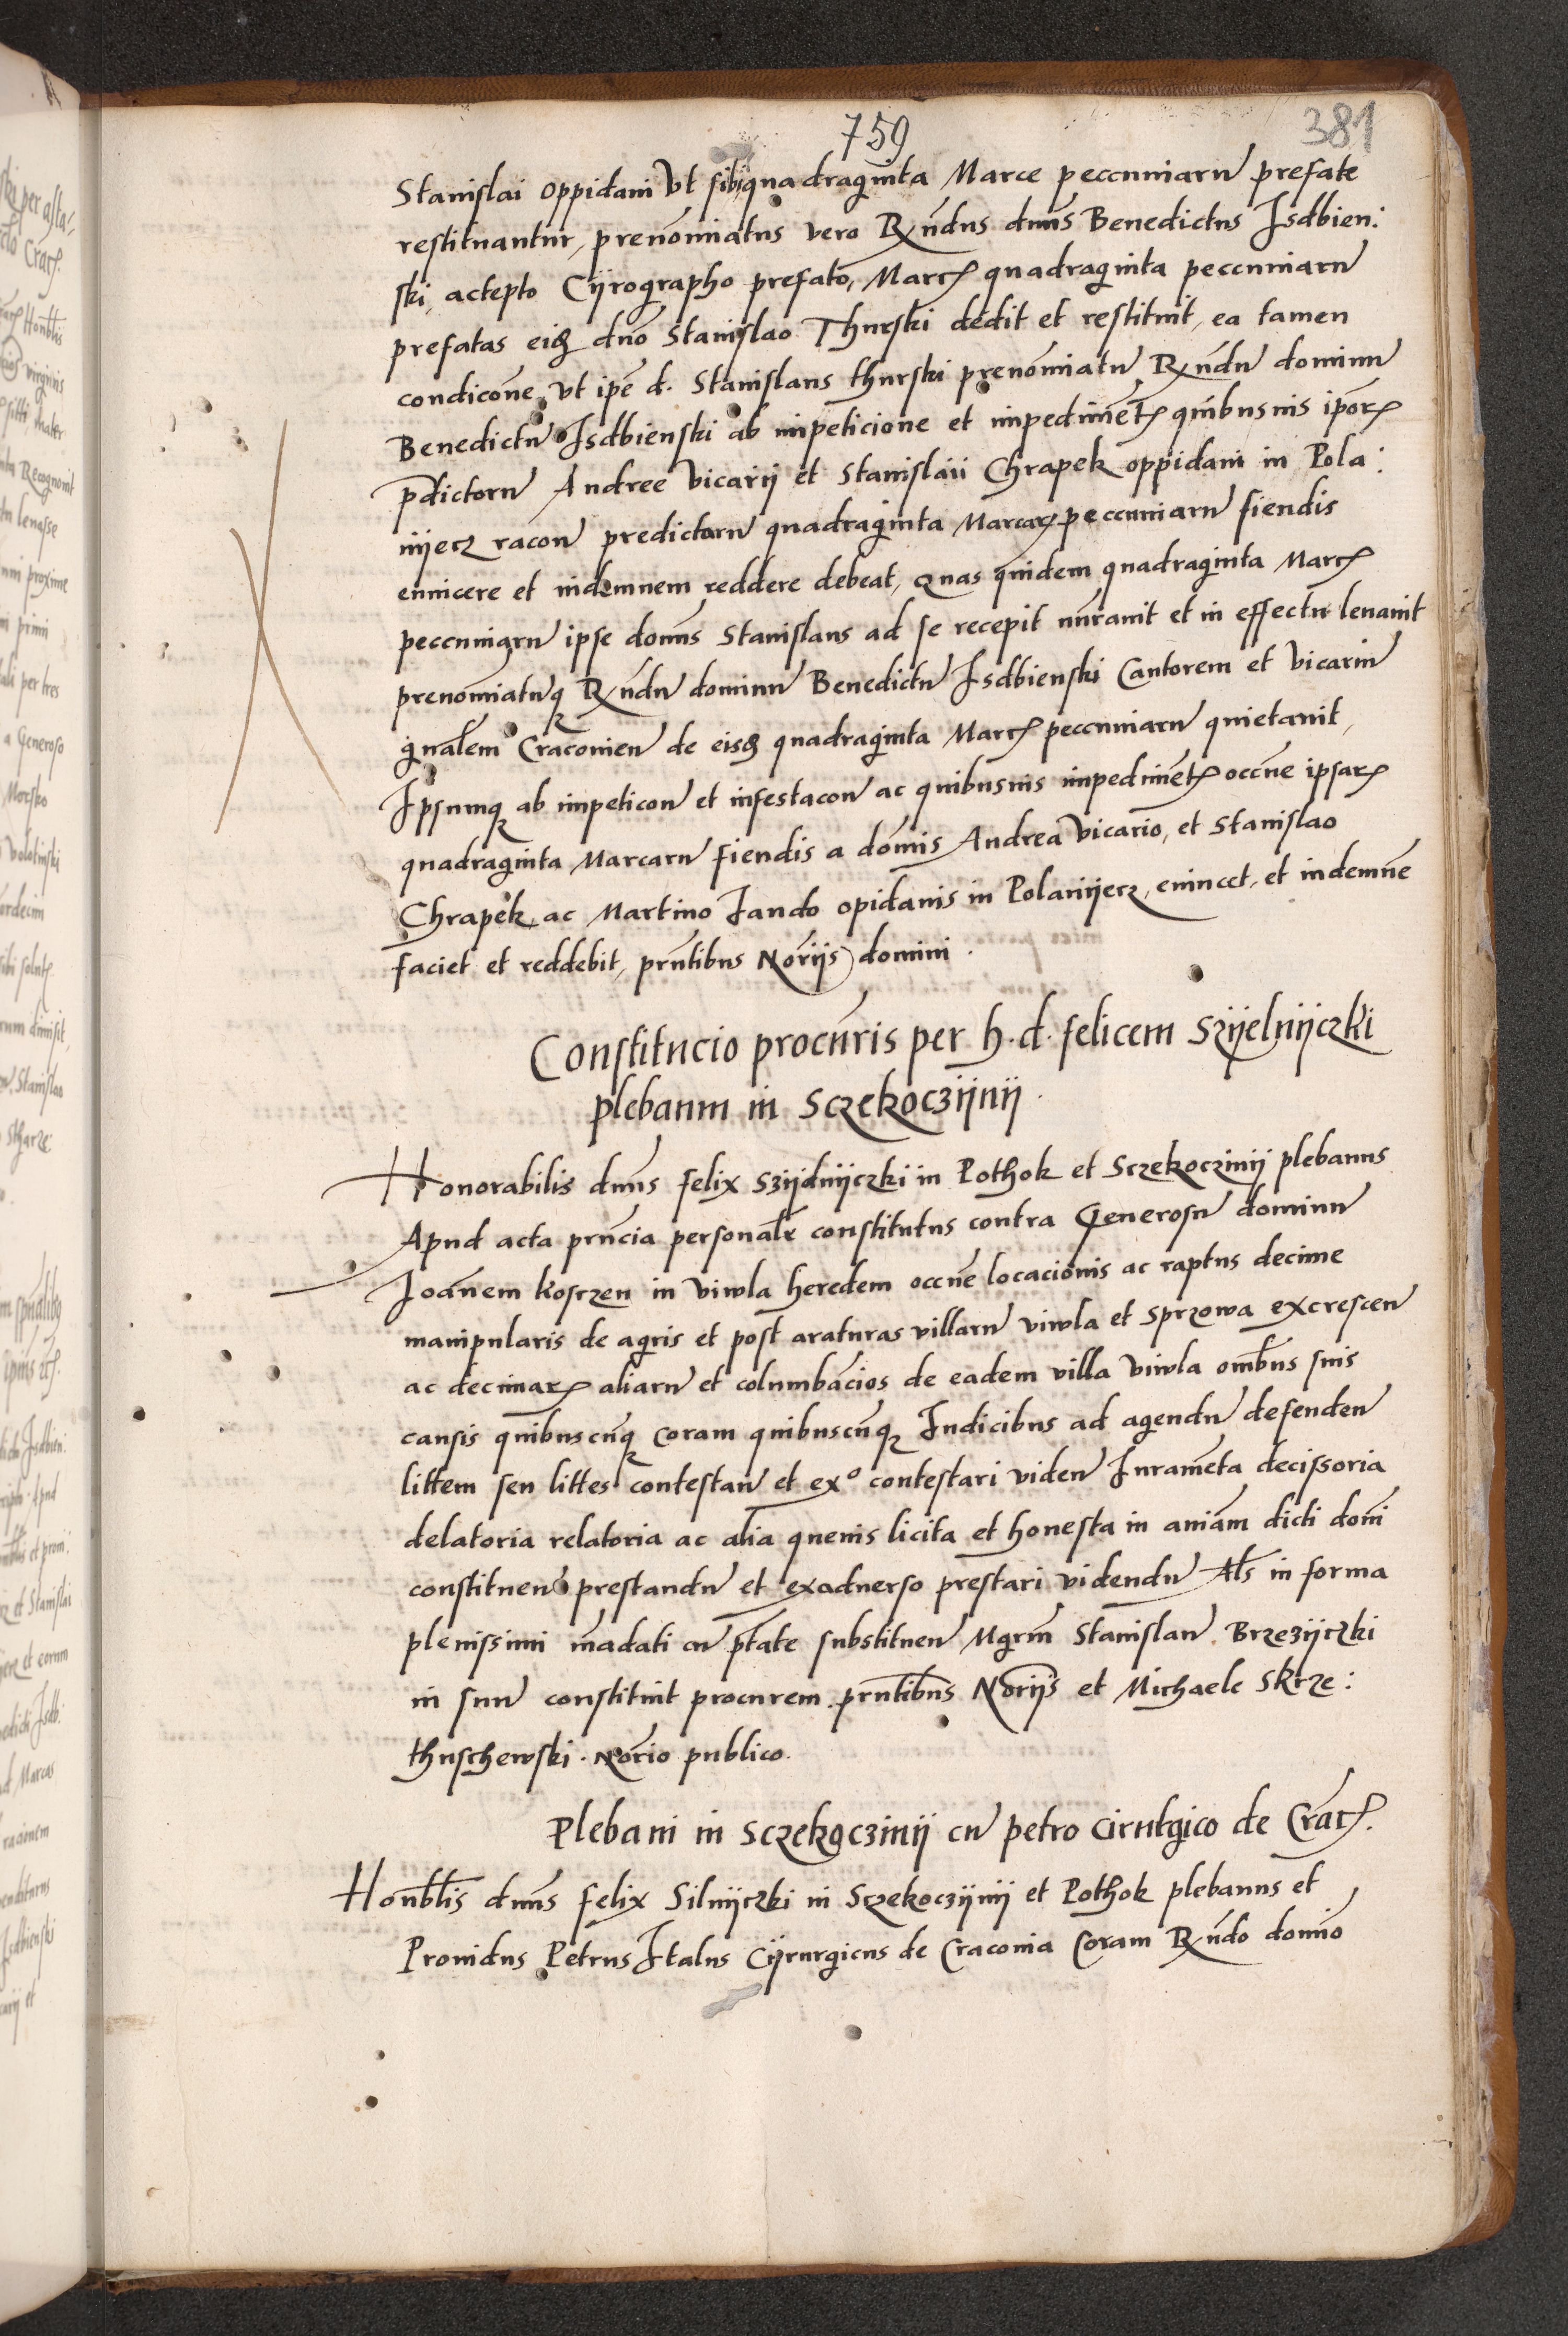 759
381
Stanislai oppidani Vt sibi quadraginta Marce peccuniarū prefate
restituantur, prenōminatus vero Rn̄dus dn̄us Benedictus Isdbien:
ski, actepto Cÿrographo prefato, Marcꝝ quadraginta peccuniarū
prefatas eisdē dn̄o Stanislao Thurski dedit et restituit, ea tamen
condicōne, vt ipē d. Stanislaus thurski prenōminatū Rn̄dū dominū
Benedictū Isdbienski ab inpeticione et inpedimētꝝ quibusuis ipōrꝝ
p̄dictorū Andree Vicarij et Stanislaii Chrapek oppidani in Pola:
nijecz racōn predictarū quadraginta Marcarꝝ peccuniarū fiendis
euincere et indemnem reddere debeat, Quas quidem quadraginta Marcꝝ
peccuniarū ipse domūs Stanislaus ad se recepit nūrauit et in effectu leuauit
prenōminatūqꝫ Rn̄dū dominū Benedictū Isdbienski Cantorem et Vicariū
gn̄alem Cracouien̄ de eisdē quadraginta Marcꝝ peccuniarū quietauit,
Ipsumqꝫ ab inpeticōn et infestacōn ac quibusuis inpedimētꝝ occn̄e ipsarꝝ
quadraginta Marcarū fiendis a domīs Andrea Vicario, et Stanislao
Chrapek, ac Martino Jando opidanis in Polanijecz, euincet, et indemnē
faciet et reddebit, prn̄tibus Nōrijs domini.
Constitucio procūris per h. d. felicem Szÿelnÿczki
plebanum in Sczekoczÿnÿ.
Honorabilis dn̄us felix Szÿdnÿczki in Pothok et Sczekoczinÿ plebanus
Apud acta prn̄cia personalr̄ constitutus contra Generosū dominū
Joannem Kosczen in viwla heredem occn̄e locacionis ac raptus decime
manipularis de agris et post araturas villarū viwla et Sprzowa excrescen̄
ac decimarꝝ aliarū et columbācios de eadem villa viwla om̄bus suis
causis quibuscūqꝫ coram quibuscūqꝫ Judicibus ad agendū defenden̄
littem seu littes contestan̄ et exº contestari viden̄ Juramēta decissoria
delatoria relatoria ac alia queuis licita et honesta in aniām dicti domī
constituen̄ prestandū et exaduerso prestari videndū Als̄ in forma
plenissimi mādati cū ptāte substituen̄ Mgrm̄ Stanislaū Brzezÿczki
in suū constituit procurem prn̄tibus Nōrijs et Michaele Skrze:
thuschewski. Nōrio publico.
Plebani in Sczekoczinÿ cū petro cirulgico de Cracꝝ.
Honbl̄is dn̄us felix Silnÿczki in Sczekoczÿnÿ et Pothok plebanus et
Prouidus Petrus Italus Cÿrurgicus de Cracouia Coram Rn̄do domino